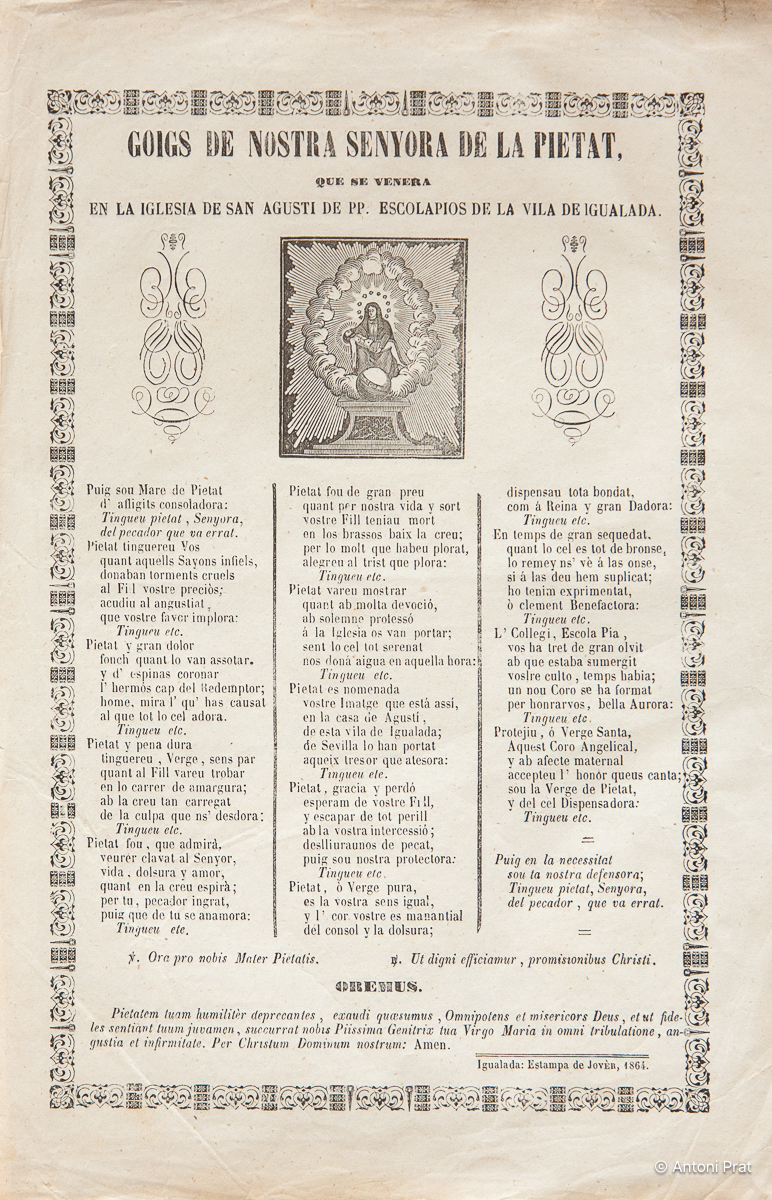 GOIGS DE NOSTRA SENYORA DE LA PIETAT,
QUE SE VENERA
EN LA IGLESIA DE SAN AGUSTI DE PP. ESCOLAPIOS DE LA VILA DE IGUALADA.
Puig sou Mare de Pietat
d' afligits consoladora:
Tingueu pietat, Senyora,
del pecador que va errat.
Pietat tinguereu Vos
quant aquells Sayons infiels,
donaban torments cruels
al Fill vostre preciòs;
acudiu al angustiat,
que vostre favor implora:
Tingueu etc.
Pietat y gran dolor
fonch quant lo van assotar,
y d' espinas coronar
l' hermós cap del Redemptor;
home, mira l' qu' has causat
al que tot lo cel adora.
Tingueu etc.
Pietat y pena dura
tinguereu, Verge, sens par
quant al Fill vareu trobar
en lo carrer de amargura;
ab la creu tan carregat
de la culpa que ns' desdora:
Tingueu etc.
Pietat fou, que admirà,
veurer clavat al Senyor,
vida, dolsura y amor,
quant en la creu espirà;
per tu, pecador ingrat,
puig que de tu se anamora:
Tingueu etc.
Pietat fou de gran preu
quant per nostra vida y sort
vostre Fill teniau mort
en los brassos baix la creu;
per lo molt que habeu plorat,
alegreu al trist que plora:
Tingueu etc.
Pietat vareu mostrar
quant ab molta devoció,
ab solemne professó
á la Iglesia os van portar;
sent lo cel tot serenat
nos doná aigua en aquella hora:
Tingueu etc.
Pietat es nomenada
vostre Imatge que està assí,
en la casa de Agustí,
de esta vila de Igualada;
de Sevilla lo han portat
aqueix tresor que atesora:
Tingueu etc.
Pietat, gracia y perdó
esperam de vostre Fill,
y escapar de tot perill
ab la vostra intercessió;
deslliuraunos de pecat,
puig sou nostra protectora:
Tingueu etc.
Pietat, ò Verge pura,
es la vostra sens igual,
y l' cor vostre es manantial
del consol y la dolsura;
dispensau tota bondat,
com á Reina y gran Dadora:
Tingueu etc.
En temps de gran sequedat,
quant lo cel es tot de bronse,
lo remey ns' vè á las onse,
si á las deu hem suplicat;
ho tenim exprimentat,
ò clement Benefactora:
Tingueu etc.
L' Collegi, Escola Pia,
vos ha tret de gran olvit
ab que estaba sumergit
vostre culto, temps habia;
un nou Coro se ha format
per honrarvos, bella Aurora:
Tingueu etc.
Protejiu, ó Verge Santa,
Aquest Coro Angelical,
y ab afecte maternal
accepteu l' honór queus canta;
sou la Verge de Pietat,
y del cel Dispensadora:
Tingueu etc.
Puig en la necessitat
sou ta nostra defensora;
Tingueu pietat, Senyora,
del pecador, que va errat.
℣. Ora pro nobis Mater Pietatis. ℟. Ut digni efficiamur, promisionibus Christi.
OREMUS.
Pietatem tuam humilitèr deprecantes, exaudi quæsumus, Omnipotens et misericors Deus, et ut fide-
les sentiant tuum juvamen, succurrat nobis Piissima Genitrix tua Virgo Maria in omni tribulatione, an-
gustia et infirmitate. Per Christum Dominum nostrum: Amen.
Igualada: Estampa de JOVÈR, 1864.
© Antoni Prat